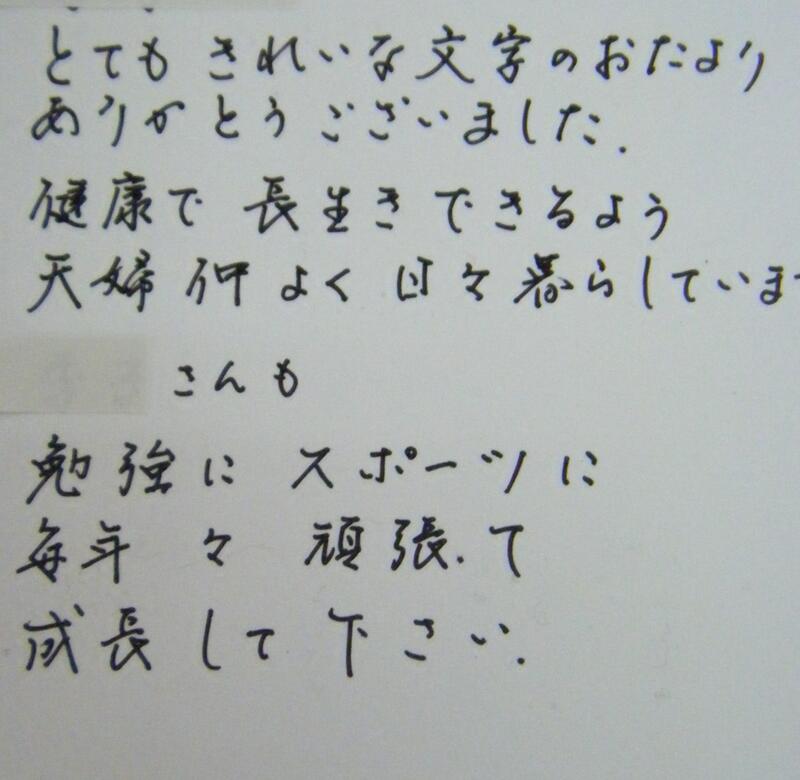 とてもきれいな文字のおたより
ありがとうございました.
健康で長生きできるよう
夫婦仲よく日々暮らしています
さんも
勉強にスポーツに
毎年々頑張って
成長して下さい.